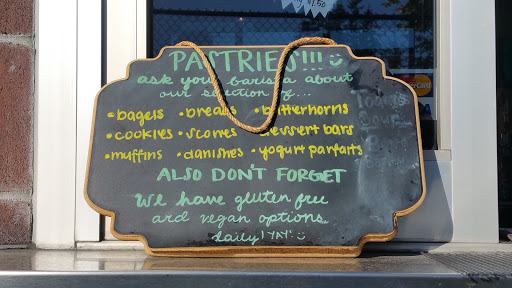 PASTRIES!!!
ask your barista about
our selection of...
• bagels • breads • butterhorns
• cookies • scones • dessert bars
• muffins • danishes • yogurt parfaits
ALSO DON'T FORGET
We have gluten free
and vegan options
daily! YAY!
MasterCard